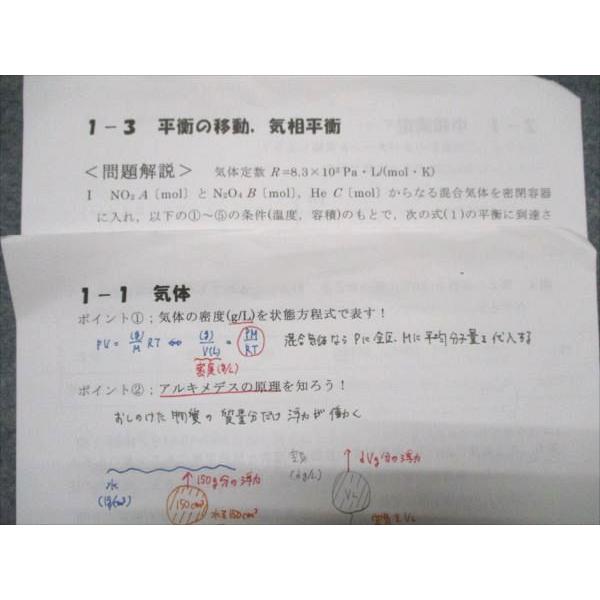 1－3 平衡の移動，気相平衡
＜問題解説＞ 気体定数 R=8.3×10³ Pa・L/(mol・K)
I NO₂ A〔mol〕と N₂O₄ B〔mol〕，He C〔mol〕からなる混合気体を密閉容器
に入れ，以下の①～⑤の条件(温度，容積)のもとで，次の式(1)の平衡に到達さ
1－1 気体
ポイント①：気体の密度(g/L)を状態方程式で表す！
PV = (g)/M RT ⇔ (g)/V(L) = PM/RT 混合気体なら Pに全圧、Mに平均分子量を代入する
密度(g/L)
ポイント②：アルキメデスの原理を知ろう！
おしのけた物質の質量分だけ浮力が働く
水 (1g/cm³) 150g分の浮力 150cm³ 水を150cm³
空気 (d g/L) dVg分の浮力 VL